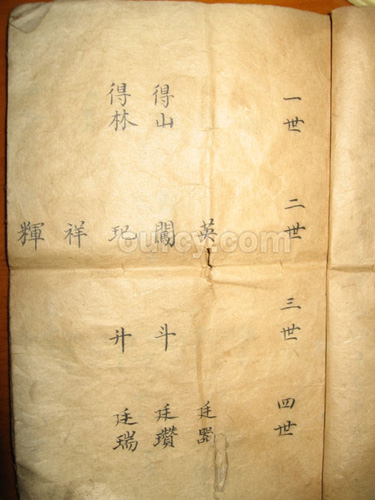 一世
得山
得林
二世
英
闖
玘
祥
輝
三世
斗
升
四世
廷器
廷瓚
廷瑞
ourcy.com